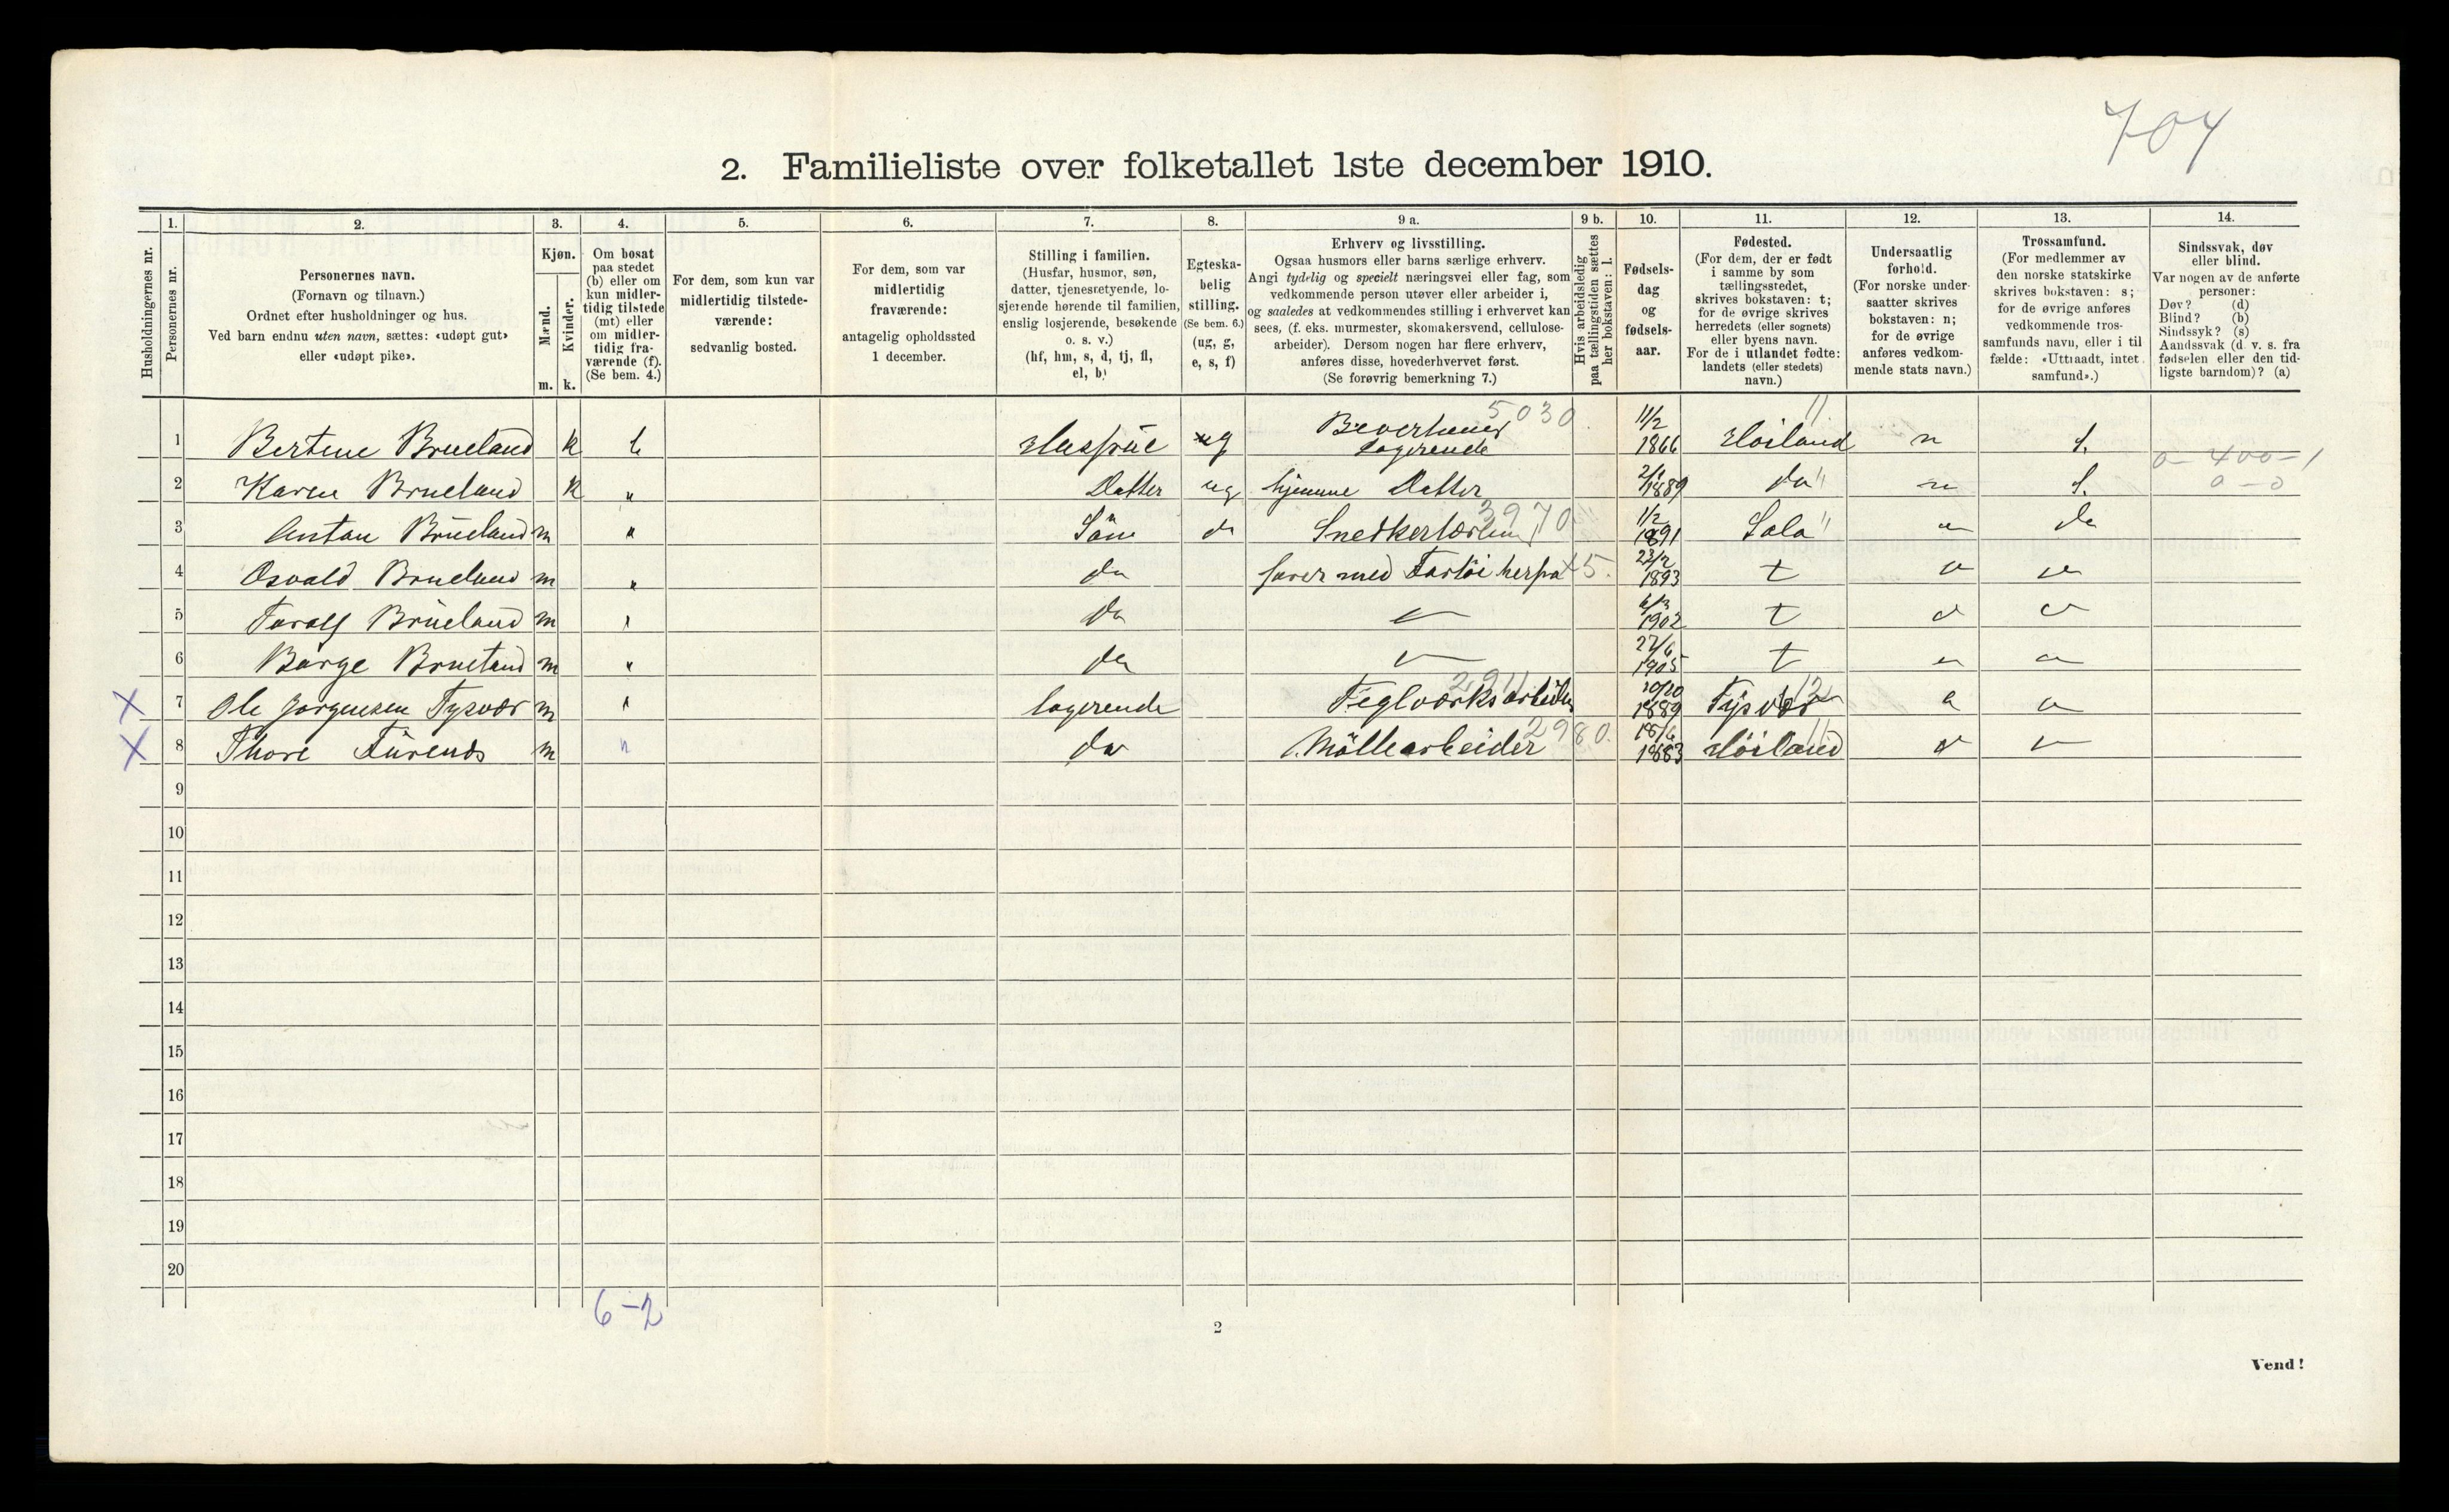 704
2. Familieliste over folketallet 1ste december 1910.
Husholdningernes nr.
1. Personernes nr.
2. Personernes navn.
(Fornavn og tilnavn.)
Ordnet efter husholdninger og hus.
Ved barn endnu uten navn, sættes: «udøpt gut»
eller «udøpt pike».
3. Kjøn.
Mænd. m.
Kvinder. k.
4. Om bosat
paa stedet
(b) eller om
kun midler-
tidig tilstede
(mt) eller
om midler-
tidig fra-
værende (f).
(Se bem. 4.)
5. For dem, som kun var
midlertidig tilstede-
værende:
sedvanlig bosted.
6. For dem, som var
midlertidig
fraværende:
antagelig opholdssted
1 december.
7. Stilling i familien.
(Husfar, husmor, søn,
datter, tjenestyende, lo-
sjerende hørende til familien,
enslig losjerende, besøkende
o. s. v.)
(hf, hm, s, d, tj, fl,
el, b)
8. Egteska-
belig
stilling.
(Se bem. 6.)
(ug, g,
e, s, f)
9 a. Erhverv og livsstilling.
Ogsaa husmors eller barns særlige erhverv.
Angi tydelig og specielt næringsvei eller fag, som
vedkommende person utøver eller arbeider i,
og saaledes at vedkommendes stilling i erhvervet kan
sees, (f. eks. murmester, skomakersvend, cellulose-
arbeider). Dersom nogen har flere erhverv,
anføres disse, hovederhvervet først.
(Se forøvrig bemerkning 7.)
9 b. Hvis arbeidsledig
paa tællingstiden sættes
her bokstaven: l.
10. Fødsels-
dag
og
fødsels-
aar.
11. Fødested.
(For dem, der er født
i samme by som
tællingsstedet,
skrives bokstaven: t;
for de øvrige skrives
herredets (eller sognets)
eller byens navn.
For de i utlandet fødte:
landets (eller stedets)
navn.)
12. Undersaatlig
forhold.
(For norske under-
saatter skrives
bokstaven: n;
for de øvrige
anføres vedkom-
mende stats navn.)
13. Trossamfund.
(For medlemmer av
den norske statskirke
skrives bokstaven: s;
for de øvrige anføres
vedkommende tros-
samfunds navn, eller i til
fælde: «Uttraadt, intet
samfund».)
14. Sindssvak, døv
eller blind.
Var nogen av de anførte
personer:
Døv? (d)
Blind? (b)
Sindssyk? (s)
Aandssvak (d. v. s. fra
fødselen eller den tid-
ligste barndom)? (a)
1 Bertine Brueland k b Husfrue ug Logerende 5030 11/2 1866 Höiland 11 n s. 0-400-1
2 Karen Brueland k " Datter ug hjemme Datter 1889 do 11 n s. 0-0
3 Anton Brueland m " Sön do 3970 1/2 1891 Sola 11 " do
4 Osvald Brueland m " do farer med Fartöi herfra 5. 23/2 1893 t " "
5 Toralf Brueland m " do " 6/3 1902 t " "
6 Børge Brueland m " do " 27/6 1905 t " "
X 7 Ole Jorgensen Tysvær m " logerende Teglværksarbeider 2911 1889 Tysvær 12 " "
X 8 Thore m " do Möllearbeider 2980. 18/6 1883 Höiland 11 " "
9
10
11
12
13
14
15
16
17
18
19
20
6-2
2
Vend!